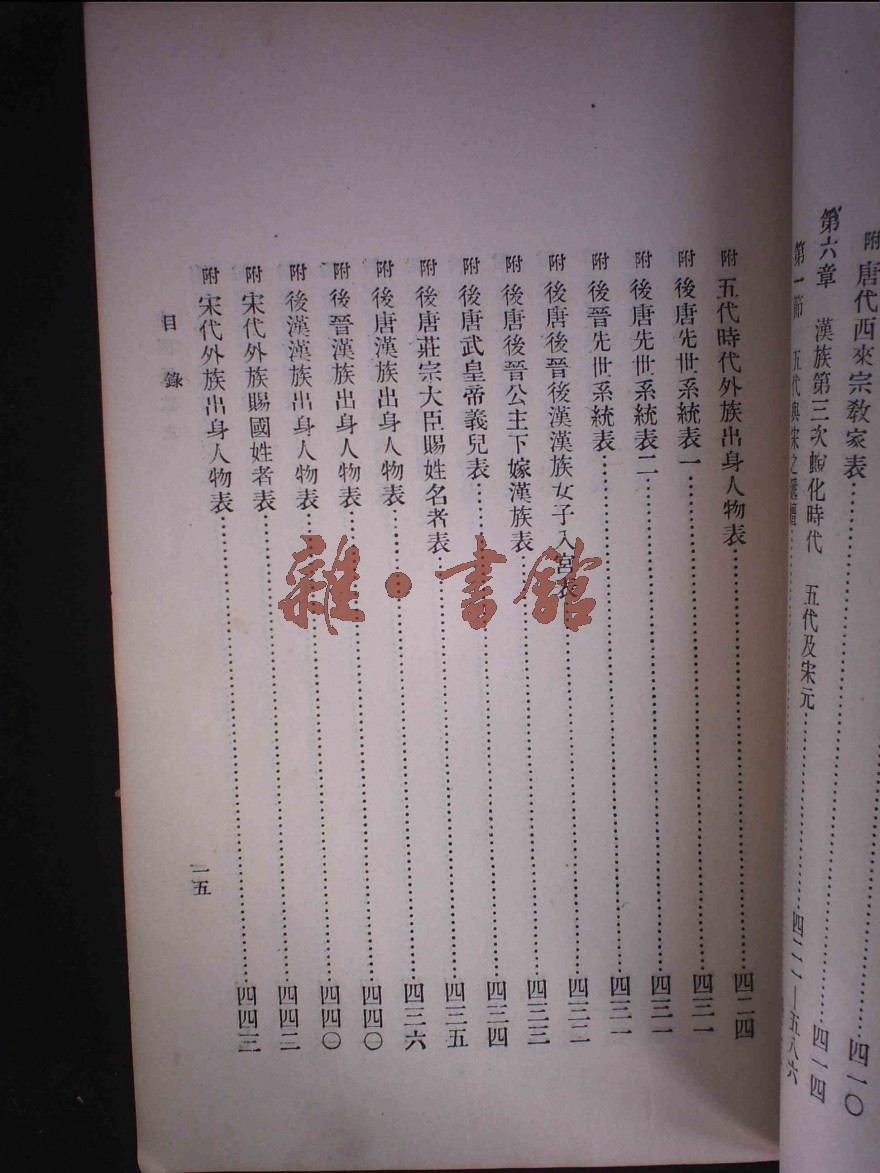 四一〇
附 唐代西來宗教家表……四一四
第六章 漢族第三次蛻化時代 五代及宋元……四二一—五八六
第一節 五代與宋之
附 五代時代外族出身人物表……四二四
附 後唐先世系統表一……四三一
附 後唐先世系統表二……四三一
附 後晉先世系統表……四三一
附 後唐後晉後漢漢族女子入宮表……四三二
附 後唐後晉公主下嫁漢族表……四三三
附 後唐武皇帝義兒表……四三四
附 後唐莊宗大臣賜姓名者表……四三五
附 後唐漢族出身人物表……四三六
附 後晉漢族出身人物表……四四〇
附 後漢漢族出身人物表……四四〇
附 宋代外族賜國姓者表……四四二
附 宋代外族出身人物表……四四三
目錄
一五
雜·書館